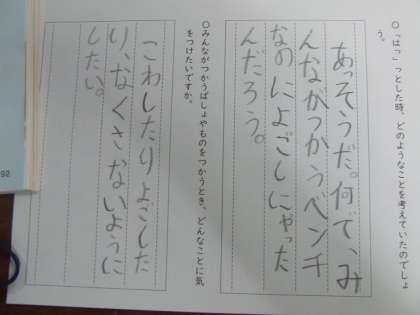 ○「はっ」っとした時、どのようなことを考えていたのでしょ
う。
あっそうだ。何で、み
んながつかうベンチ
なのによごしにゃった
んだろう。
○みんながつかうばしょやものをつかうとき、どんなことに気
をつけたいですか。
こわしたりよごした
り、なくさないように
したい。
92